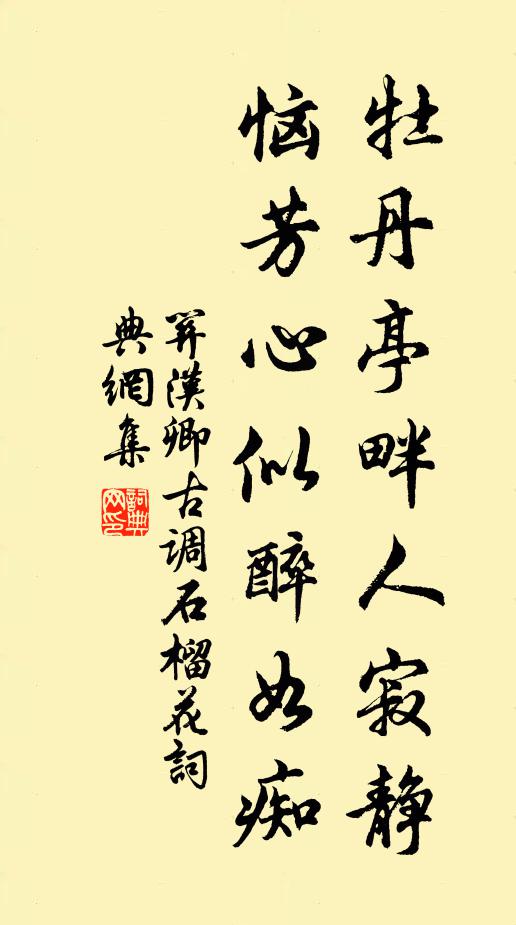 牡丹亭畔人寂静
恼芳心似醉如痴
关汉卿古调石榴花詞
典網集
詞典
网印